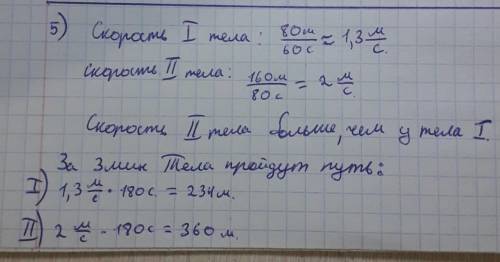 5) Скорость I тела: 80м/60с ≈ 1,3 м/с.
скорость II тела: 160м/80с = 2 м/с.
Скорость II тела больше, чем у тела I.
За 3 мин тела пройдут путь:
I) 1,3 м/с · 180с. = 234 м.
II) 2 м/с · 180с = 360 м.